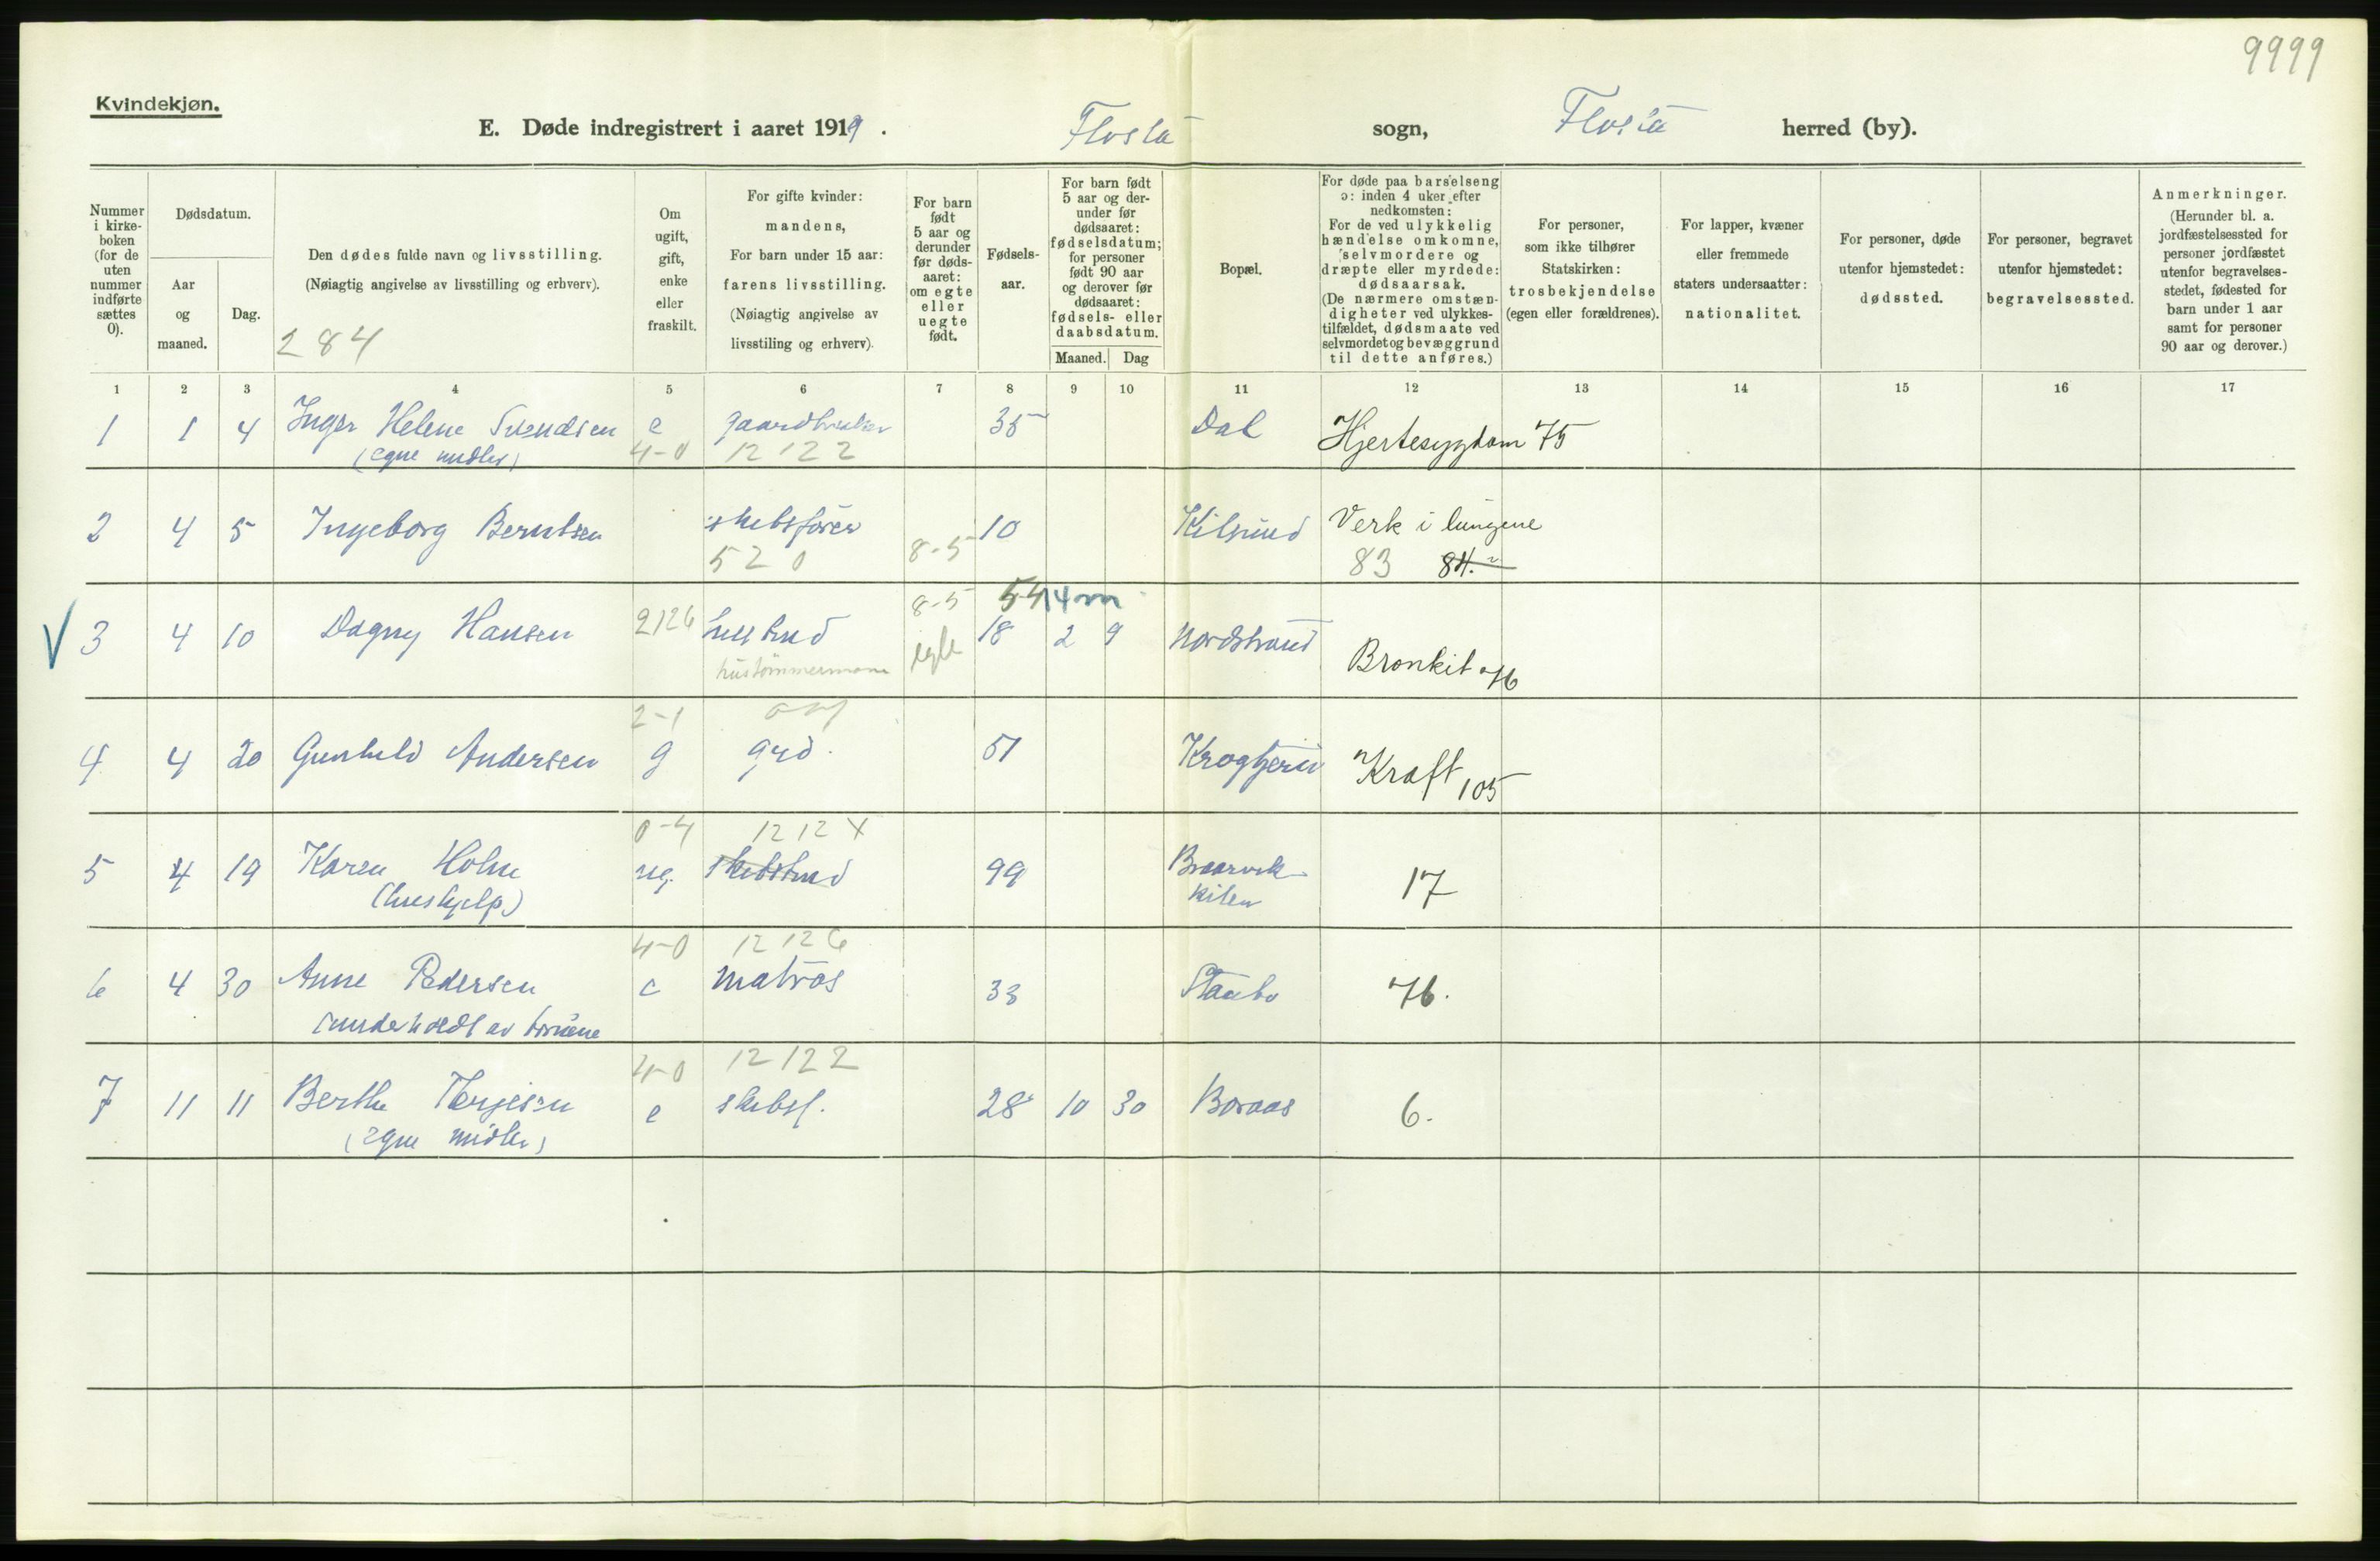 9999
Kvindekjøn.
E. Døde indregistrert i aaret 1919. Flosta sogn, Flosta herred (by).
Nummer i kirkeboken (for de uten nummer indførte sættes 0).
Dødsdatum.
Aar og maaned.
Dag.
Den dødes fulde navn og livsstilling.
(Nøiagtig angivelse av livsstilling og erhverv).
284
Om ugift, gift, enke eller fraskilt.
For gifte kvinder: mandens,
For barn under 15 aar: farens livsstilling.
(Nøiagtig angivelse av livsstiling og erhverv).
For barn født 5 aar og derunder før dødsaaret: om egte eller uegte født.
Fødselsaar.
For barn født 5 aar og derunder før dødsaaret: fødselsdatum; for personer født 90 aar og derover før dødsaaret: fødsels- eller daabsdatum.
Maaned. Dag
Bopæl.
For døde paa barselseng ɔ: inden 4 uker efter nedkomsten:
For de ved ulykkelig hændelse omkomne, selvmordere og dræpte eller myrdede: dødsaarsak.
(De nærmere omstændigheter ved ulykkestilfældet, dødsmaate ved selvmordet og bevæggrund til dette anføres.)
For personer, som ikke tilhører Statskirken: trosbekjendelse (egen eller forældrenes).
For lapper, kvæner eller fremmede staters undersaatter: nationalitet.
For personer, døde utenfor hjemstedet: dødssted.
For personer, begravet utenfor hjemstedet: begravelsessted.
Anmerkninger.
(Herunder bl. a. jordfæstelsessted for personer jordfæstet utenfor begravelsesstedet, fødested for barn under 1 aar samt for personer 90 aar og derover.)
1 2 3 4 5 6 7 8 9 10 11 12 13 14 15 16 17
1 1 4 Inger Helene Svendsen e gaardbruker 35 Dal Hjertesygdom 75
(egne midler) 4-0 12122
2 4 5 Ingeborg Berntsen skibsfører 10 Kilsund Verk i lungene
520 8-5 83 84.
8-5 54 14m
V 3 4 10 Dagny Hansen 2126 18 2 9 Nordstrand Bronkit 76
hustømmermann egte
2-1
4 4 20 Gunhild Andersen g grd. 51 Krogtjern Kraft 105
0-4 1212 X
5 4 19 Karen Holm ug. 99 Braarvik- 17
(hushjelp) kilen
4-0 12126
6 4 30 Anne Pedersen e matros 33 Staubo 76.
(underholdt av børnene
4-0 12122
7 11 11 Berthe Terjesen e skibsf. 28 10 30 Boraas 6.
(egne midler)